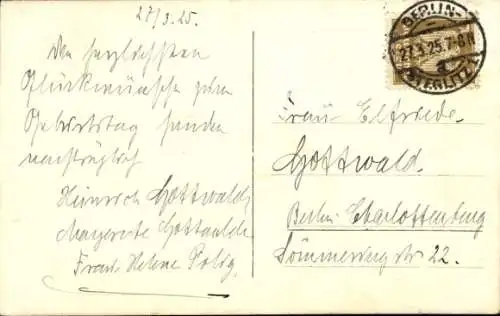 27/3.25.
Die herzlichsten
Glückwünsche zum
Geburtstag senden
nachträglich
Heinrich Gottwald
Margarete Gottwald
Frau Helene
BERLIN-
27.3.25.7-8N
a
(STEGLITZ) 1
Frau Elfriede
Gottwald.
Berlin Charlottenburg
22.